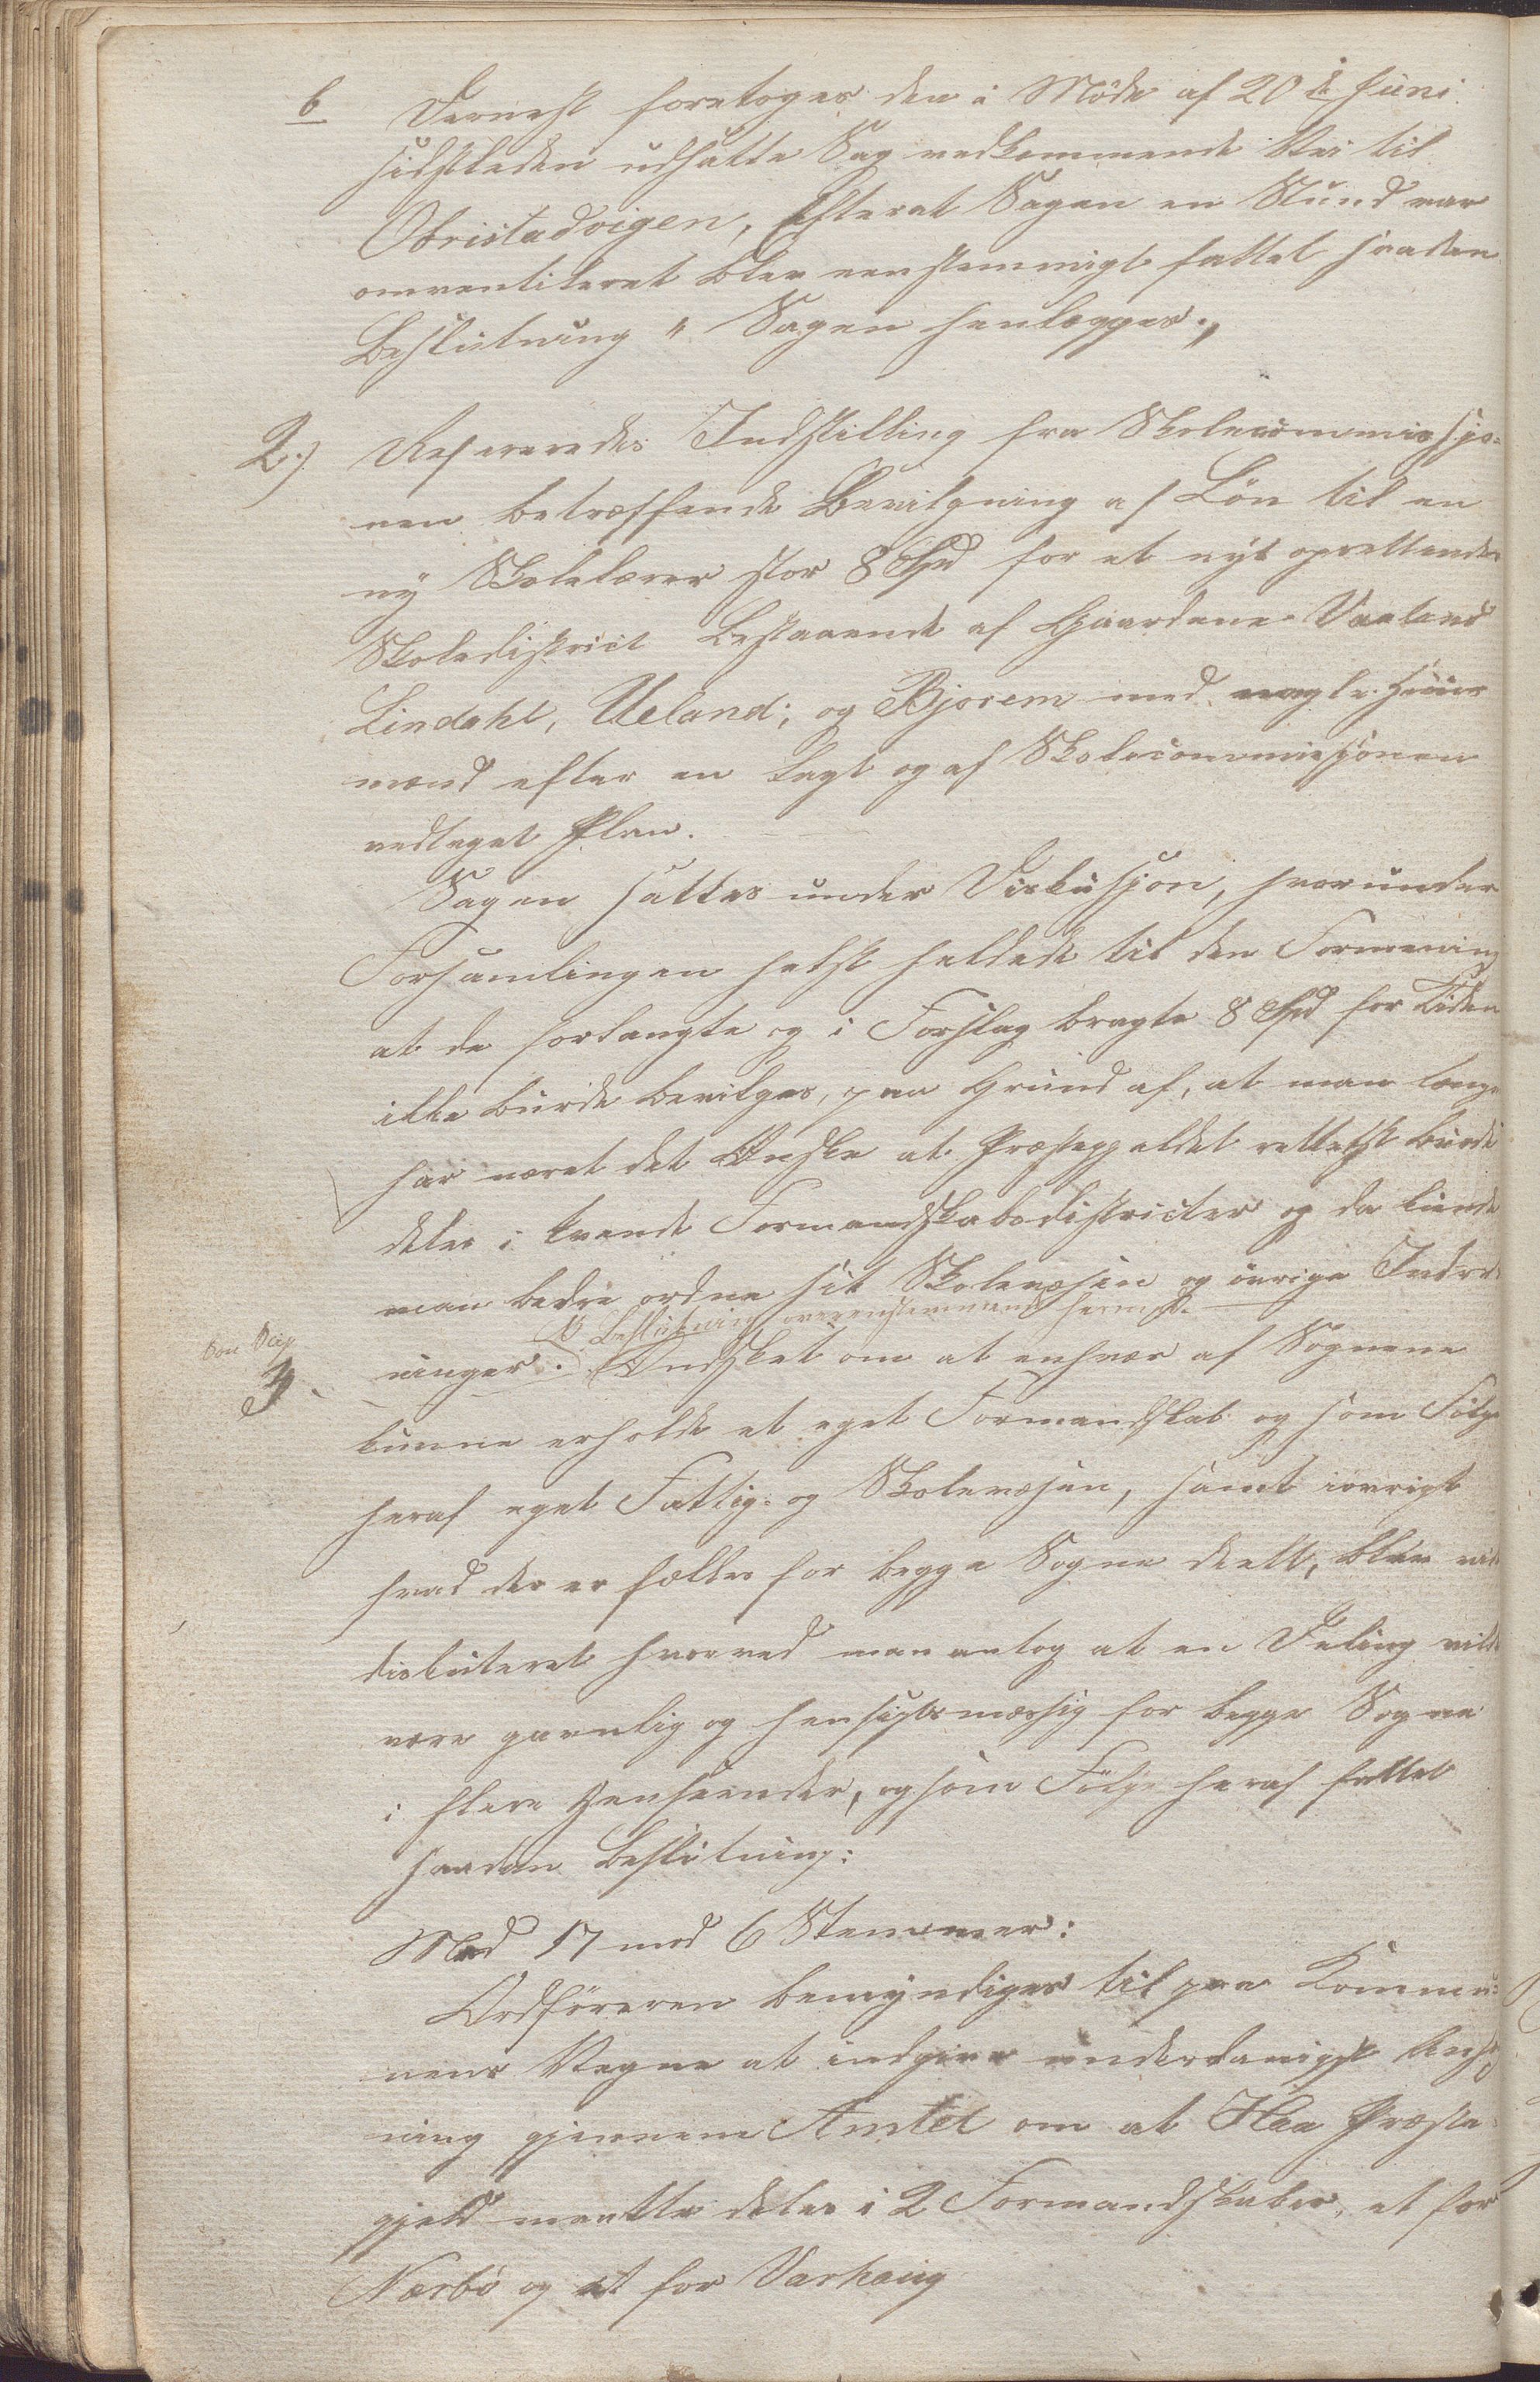 b Dernæst foretoges den i Møde af 20 de Juni
sidstleden udsatte Sag vedkommende Vei til
Obristadvigen, Efterat Sagen en Stund var
omventileret blev eenstemmigt fattet saadan
Beslutning "Sagen henlægges."
2.) Refereredes Indstilling fra Skolecommissjo-
nen betræffende Bevilgning af Løn til en
ny Skolelærer stor 8 Spd for et nyt oprettende
Skoledistrict bestaaende af Gaardene Varland
Lindahl, Ueland; og Bjorem med nogle Huus
mænd efter en lagt og af Skolecommissjonen
vedtaget Plan.
Sagen sattes under Diskusjon, hvorunder
Forsamlingen helst heldede til den Formening
at de forlangte og i Forslag bragte 8 Spd for Tiden
ikke burde bevilges, paa Grund af, at man længe
har næret det Ønske at Præstegjeldet rettest burde
deles i tvende Formandskabsdistricter og da kunde
man bedre ordne sit Skolevæsen og øvrige Indret
ninger.
NB Beslutning overensstemmende hermed.
3. Ønsket om at enhver af Sognene
kunne erholde et eget Formandskab og som Følge
heraf eget Fattig- og Skolevæsen, samt iøvrigt
hvad der er fælles for begge Sogne deelt, blev
diskuteret hvorved man antog at en Deling vilde
være gavnlig og hensigtsmæssig for begge Sogne
i flere Henseender, og som Følge heraf fattet
saadan Beslutning:
Med 17 mod 6 Stemmer:
Ordføreren bemyndiges til paa Kommu-
nens Vegne at indgive underdanigst Ansøg
ning gjennem Amtet om at Haa Præste-
gjeld maatte deles i 2 Formandskaber, et for
Nærbø og et for Varhaug